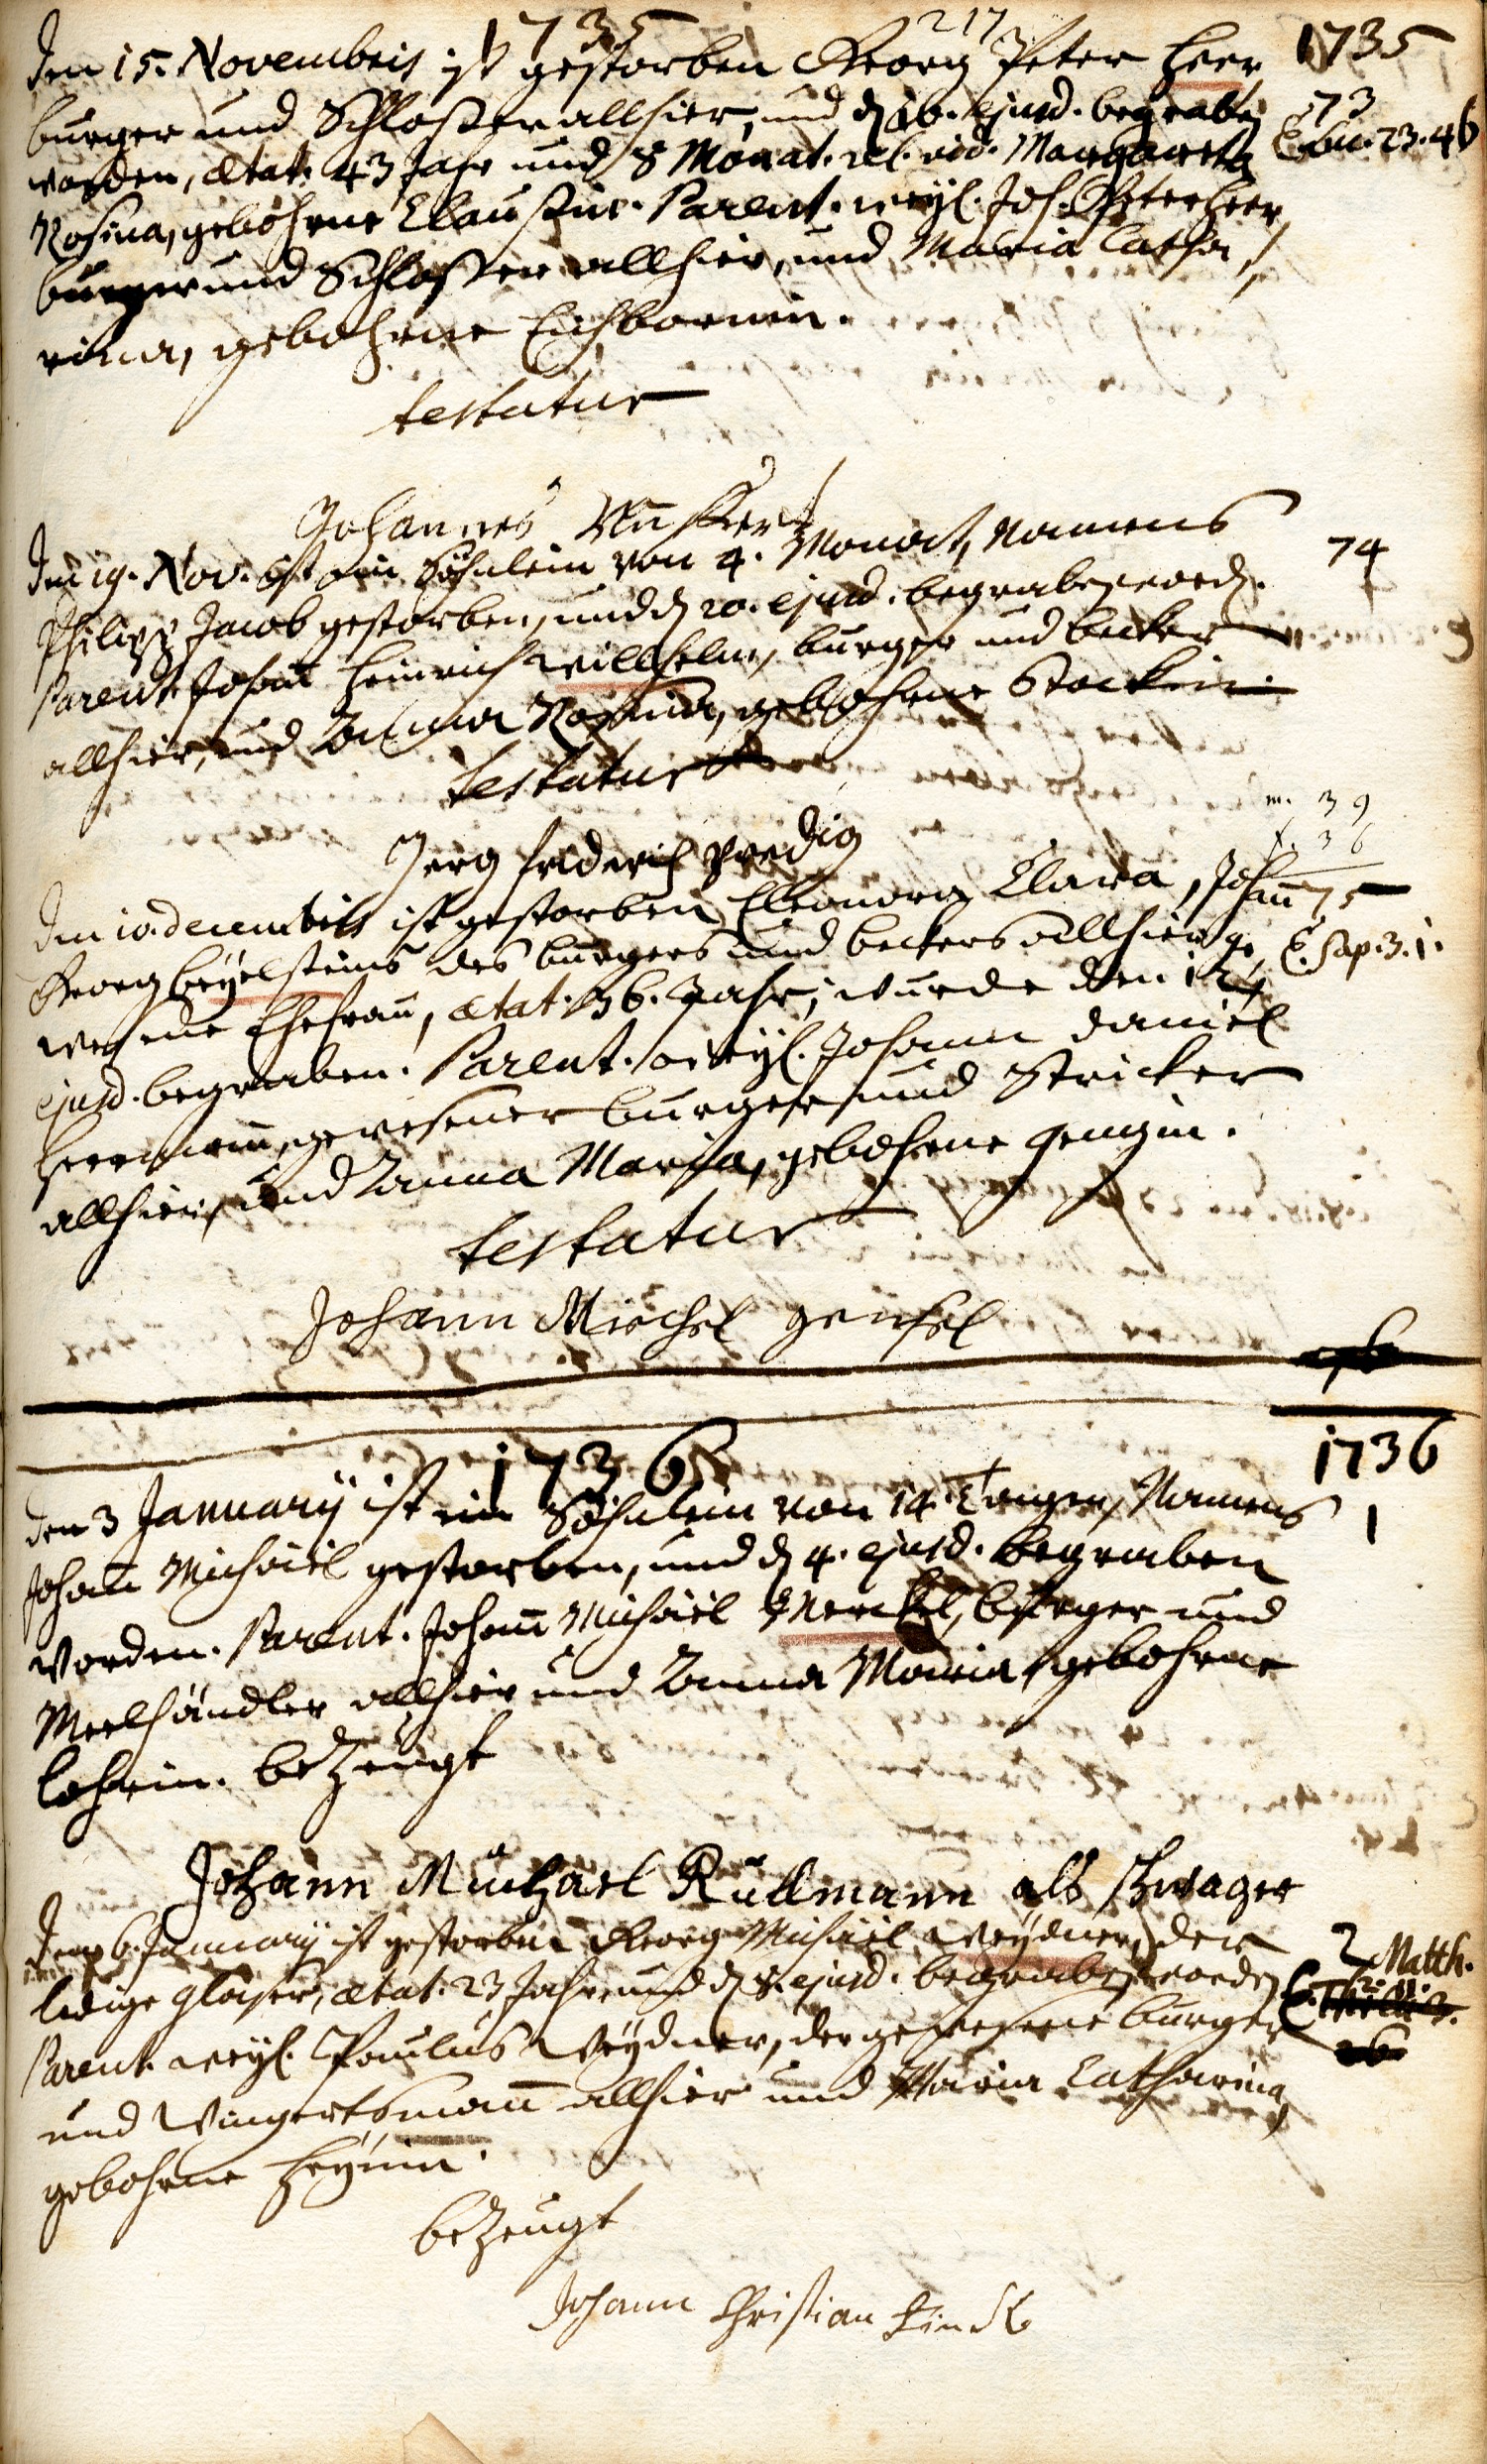 1735 217 1735
Den 15. Novembris ist gestorben Georg Peter Heer,
burger und Schlosser allhier, und d. 16. ejusd. begraben 73
worden, ætat. 43 Jahr und 8 Monat. rel. vid. Margaretha Luc. 23. 46
Rosina, gebohrne Parent. weyl. Joh. Peter Heer,
burger und Schlosser allhier, und Maria Catha-
rina, gebohrne Eichbornin.
testatur
Johannes
Den 19. Nov. ist ein Söhnlein von 4. Monath, Namens 74
Philipp Jacob gestorben, und d. 20. ejusd. begraben word.
Parent. Johann Heinrich Willhelm, burger und becker
allhier, und Anna Rosina, gebohrne Stockin.
testatur
m. 39
f. 36
Jerg friderich
Den 10. decembris ist gestorben Eleonora Clara, Johann 75
Georg Beyelsteins des burgers und beckers allhier ge- C. Sap. 3. 1.
wesene Ehefrau, ætat. 36. Jahr; wurde den 12.
ejusd. begraben. Parent. weyl. Johann Daniel
Herrmann, gewesener burger und Stricker
allhier, und Anna Maria, gebohrne
testatur
Johann Miechel
1736 1736
den 3 Januarij ist ein Söhnlein von 14. Tagen, Namens 1
Johann Michael gestorben, und d. 4. ejusd. begraben
worden. Parent. Johann Michäel Merckel, burger und
Meelhändler allhier und Anna Maria, gebohrne
bezeugt
Johann Michael Rullmann als schwager
Den 6. Januarij ist gestorben Georg Michäel Weydner, der 2 Matth.
ledige glaser, ætat. 23 Jahr und d. 8. ejusd. begraben worden
Parent. weyl. Paulus Weydner, der gewesene burger 26
und Wingertsmann allhier und Maria Catharina,
gebohrne Heynin.
bezeugt
Johann Christian